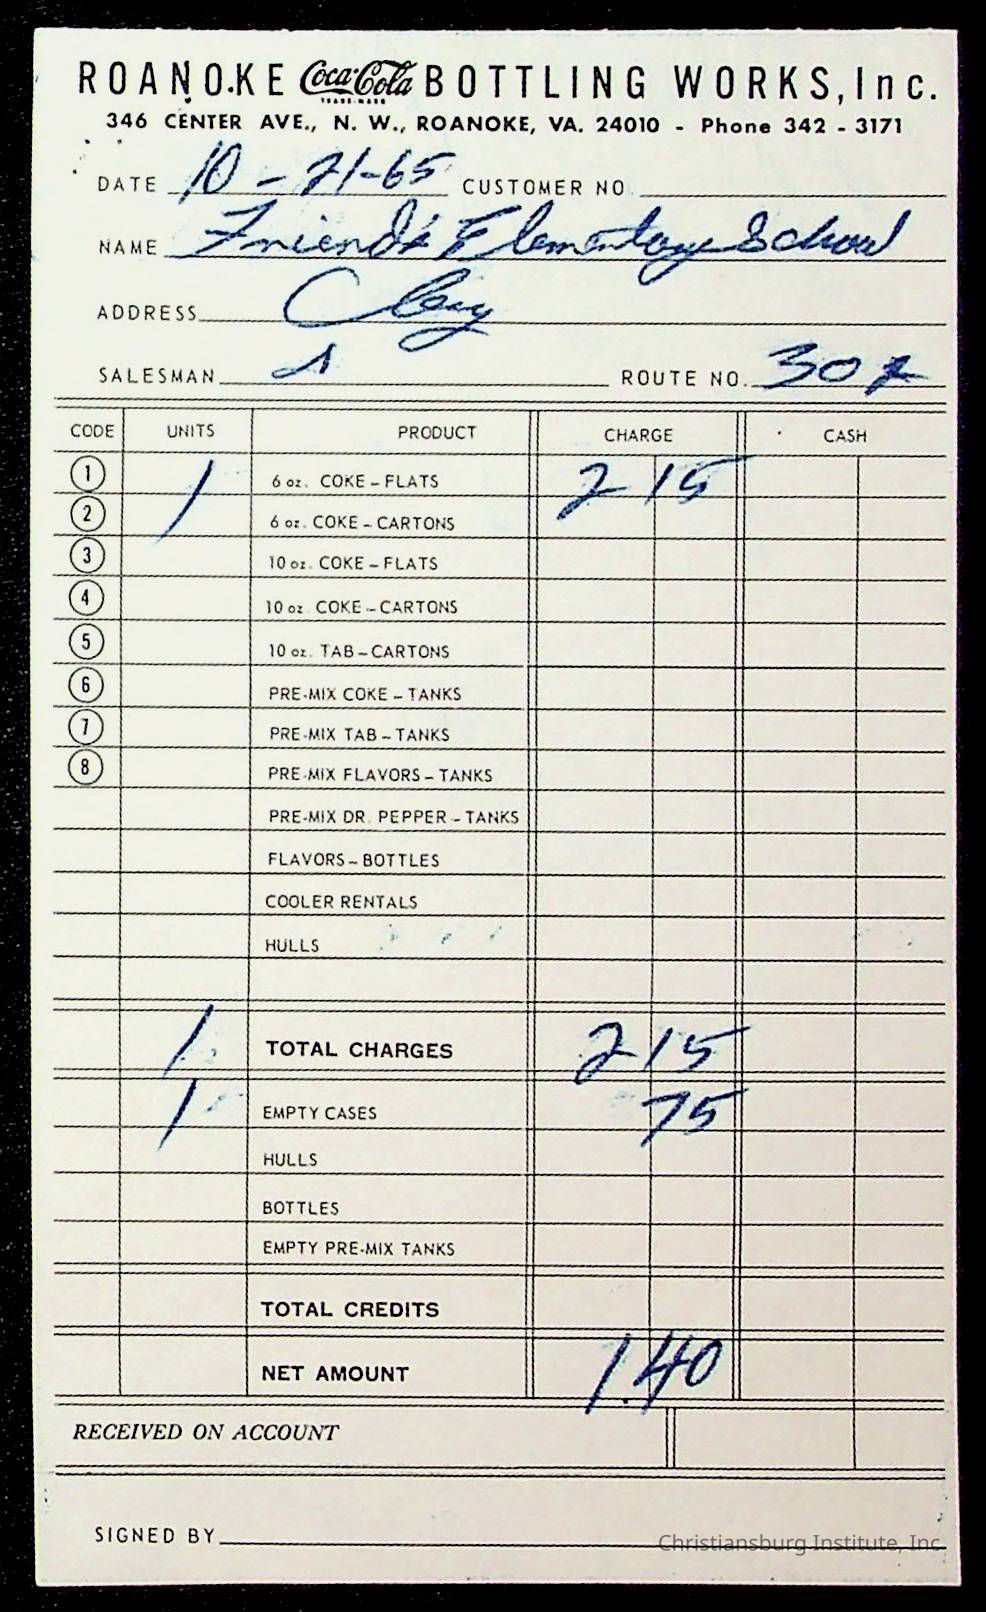 ROANOKE Coca-Cola BOTTLING WORKS, Inc.
TRADE-MARK
346 CENTER AVE., N. W., ROANOKE, VA. 24010 - Phone 342 - 3171
DATE 10-21-65 CUSTOMER NO
NAME Friend's Elementary School
ADDRESS
SALESMAN ROUTE NO. 30
CODE UNITS PRODUCT CHARGE CASH
1 1 6 oz. COKE - FLATS 2 15
2 6 oz. COKE - CARTONS
3 10 oz. COKE - FLATS
4 10 oz. COKE - CARTONS
5 10 oz. TAB - CARTONS
6 PRE-MIX COKE - TANKS
7 PRE-MIX TAB - TANKS
8 PRE-MIX FLAVORS - TANKS
PRE-MIX DR. PEPPER - TANKS
FLAVORS - BOTTLES
COOLER RENTALS
HULLS
1 TOTAL CHARGES 2 15
1 EMPTY CASES 75
HULLS
BOTTLES
EMPTY PRE-MIX TANKS
TOTAL CREDITS
NET AMOUNT 1.40
RECEIVED ON ACCOUNT
SIGNED BY
Christiansburg Institute, Inc